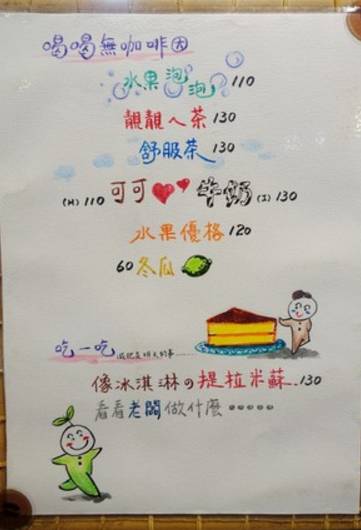 喝喝無咖啡因
水果泡泡 110
靚靚ㄟ茶 130
舒服茶 130
(H) 110 可可 牛奶 (I) 130
水果優格 120
60 冬瓜
吃一吃
像冰淇淋の提拉米蘇 130
看看老闆做什麼